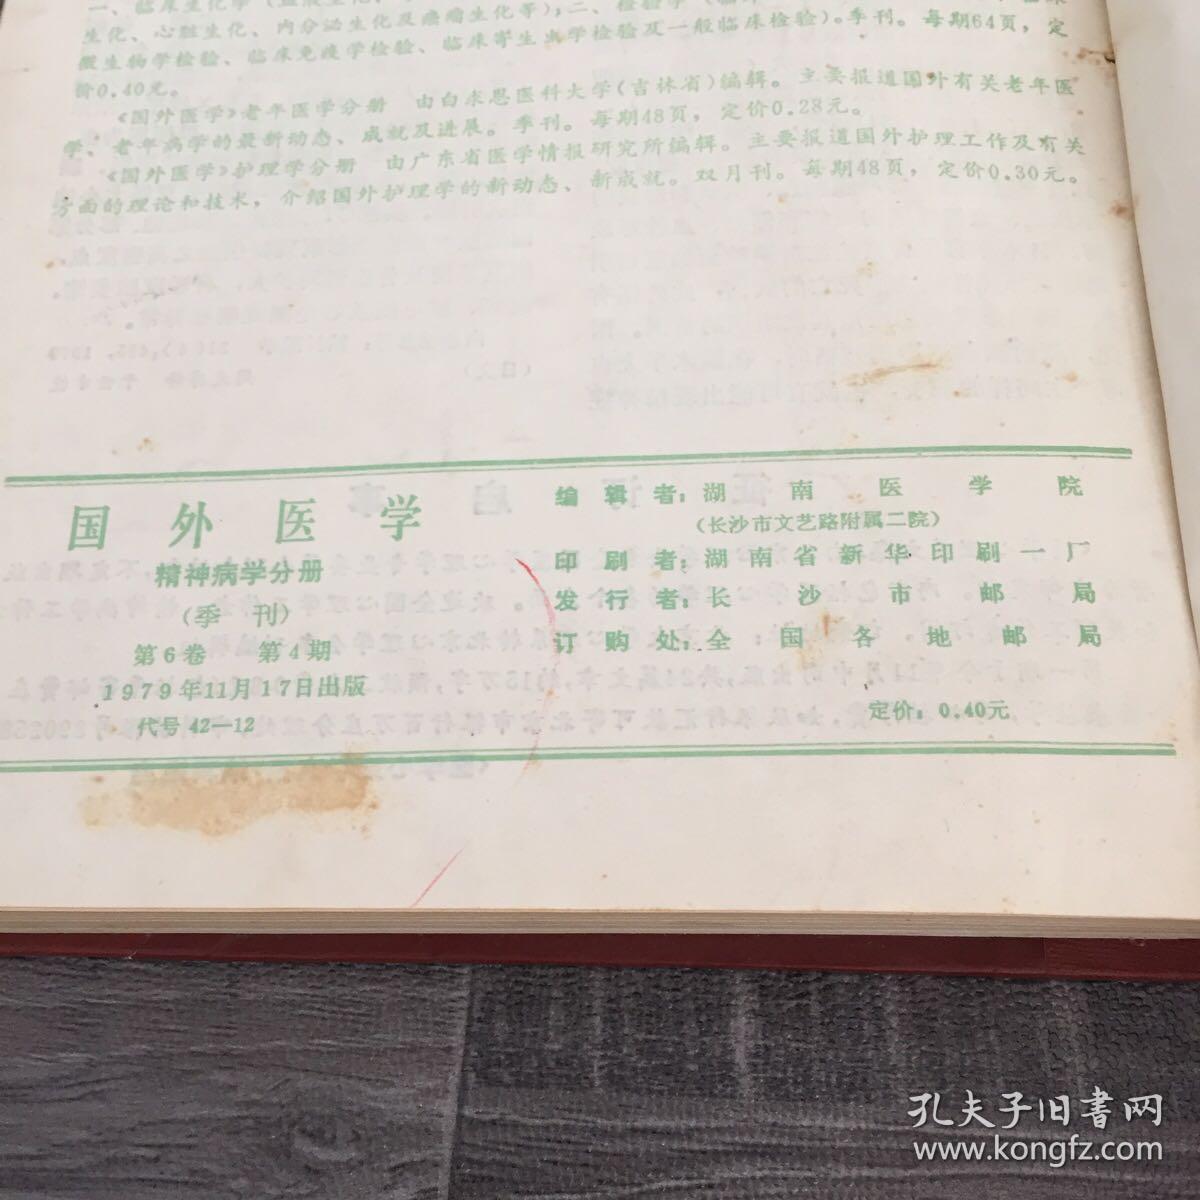 一、临床生化学
生化、心脏生化、内分泌生化及癌瘤生化等);二、检验学
微生物学检验、临床免疫学检验、临床寄生虫学检验及一般临床检验)。季刊。每期64页,定
价0.40元。
《国外医学》老年医学分册 由白求恩医科大学(吉林省)编辑。主要报道国外有关老年医
学、老年病学的最新动态、成就及进展。季刊。每期48页,定价0.28元。
《国外医学》护理学分册 由广东省医学情报研究所编辑。主要报道国外护理工作及有关
方面的理论和技术,介绍国外护理学的新动态、新成就。双月刊。每期48页,定价0.30元。
国外医学
精神病学分册
(季刊)
第6卷 第4期
1979年11月17日出版
代号 42—12
编辑者:湖南医学院
(长沙市文艺路附属二院)
印刷者:湖南省新华印刷一厂
发行者:长沙市邮局
订购处:全国各地邮局
定价:0.40元
孔夫子旧书网
www.kongfz.com